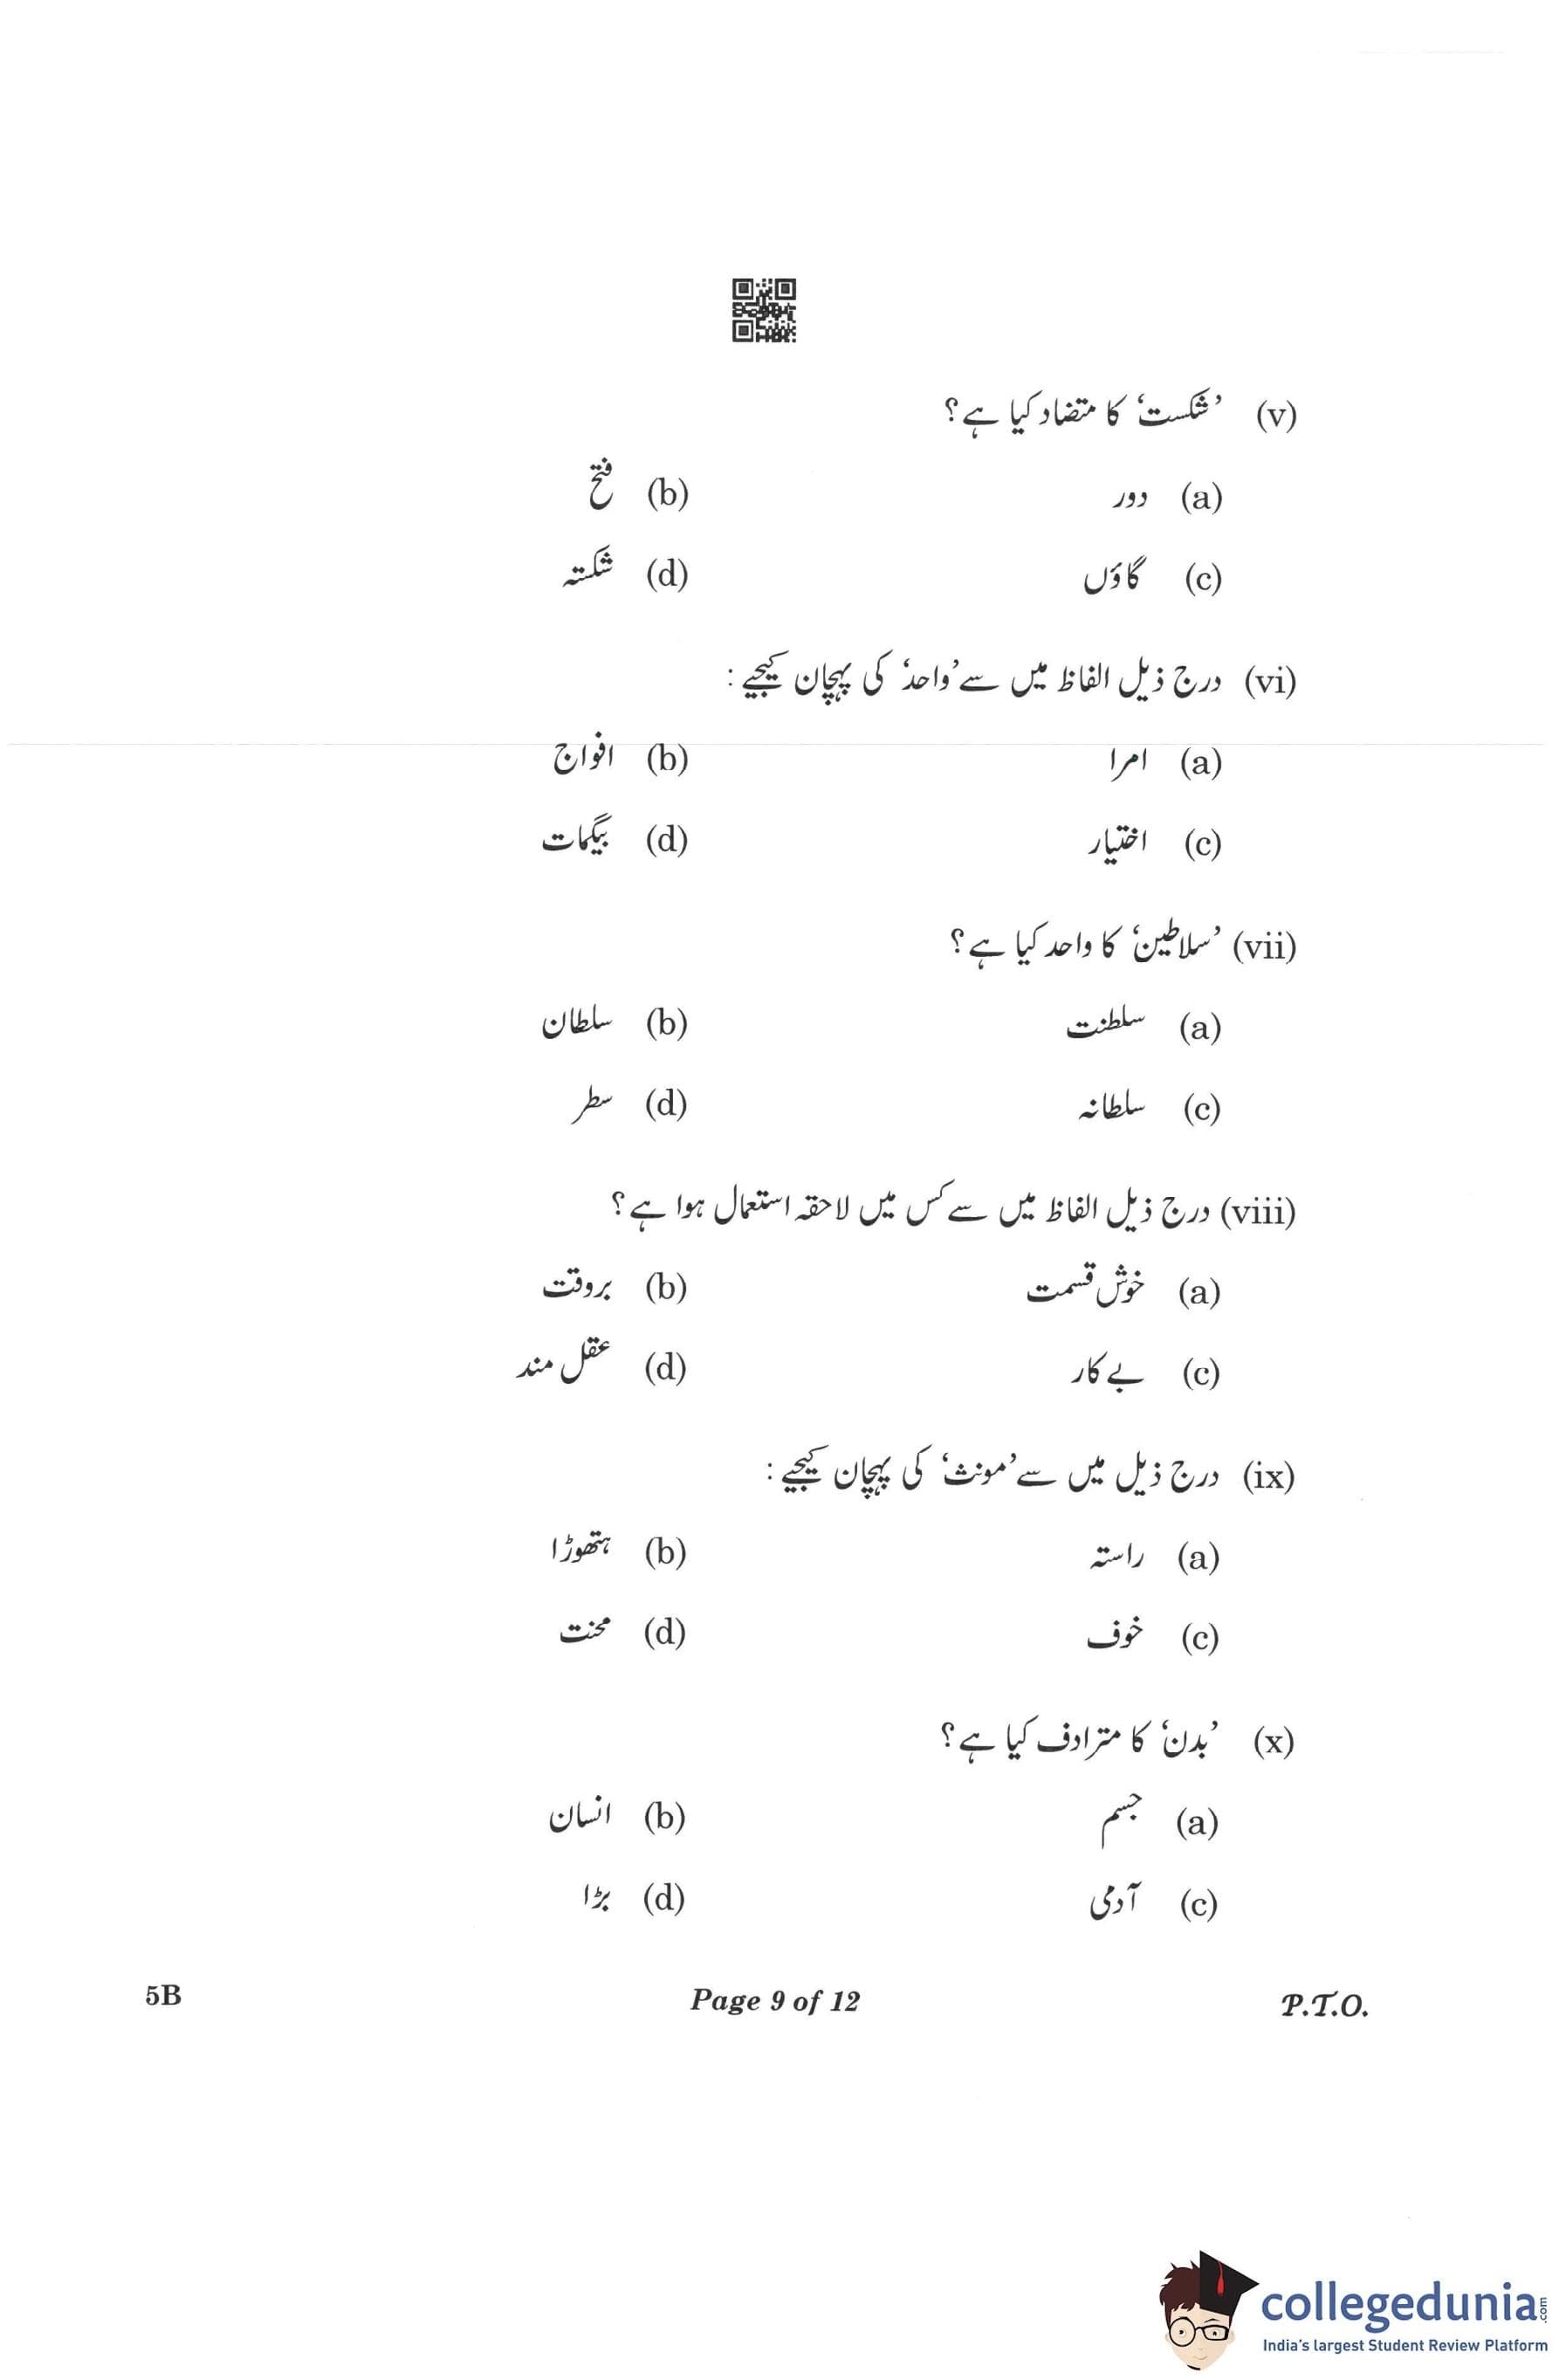 (v) ’شکست‘ کا متضاد کیا ہے؟
(a) دور (b) فتح
(c) گاؤں (d) شکستہ
(vi) درج ذیل الفاظ میں سے ’واحد‘ کی پہچان کیجیے :
(a) امرا (b) افواج
(c) اختیار (d) بیگمات
(vii) ’سلاطین‘ کا واحد کیا ہے؟
(a) سلطنت (b) سلطان
(c) سلطانہ (d) سطر
(viii) درج ذیل الفاظ میں سے کس میں لاحقہ استعمال ہوا ہے؟
(a) خوش قسمت (b) بروقت
(c) بے کار (d) عقل مند
(ix) درج ذیل میں سے ’مونث‘ کی پہچان کیجیے :
(a) راستہ (b) ہتھوڑا
(c) خوف (d) محنت
(x) ’بدن‘ کا مترادف کیا ہے؟
(a) جسم (b) انسان
(c) آدمی (d) بڑا
5B Page 9 of 12 P.T.O.
collegedunia.com
India's largest Student Review Platform